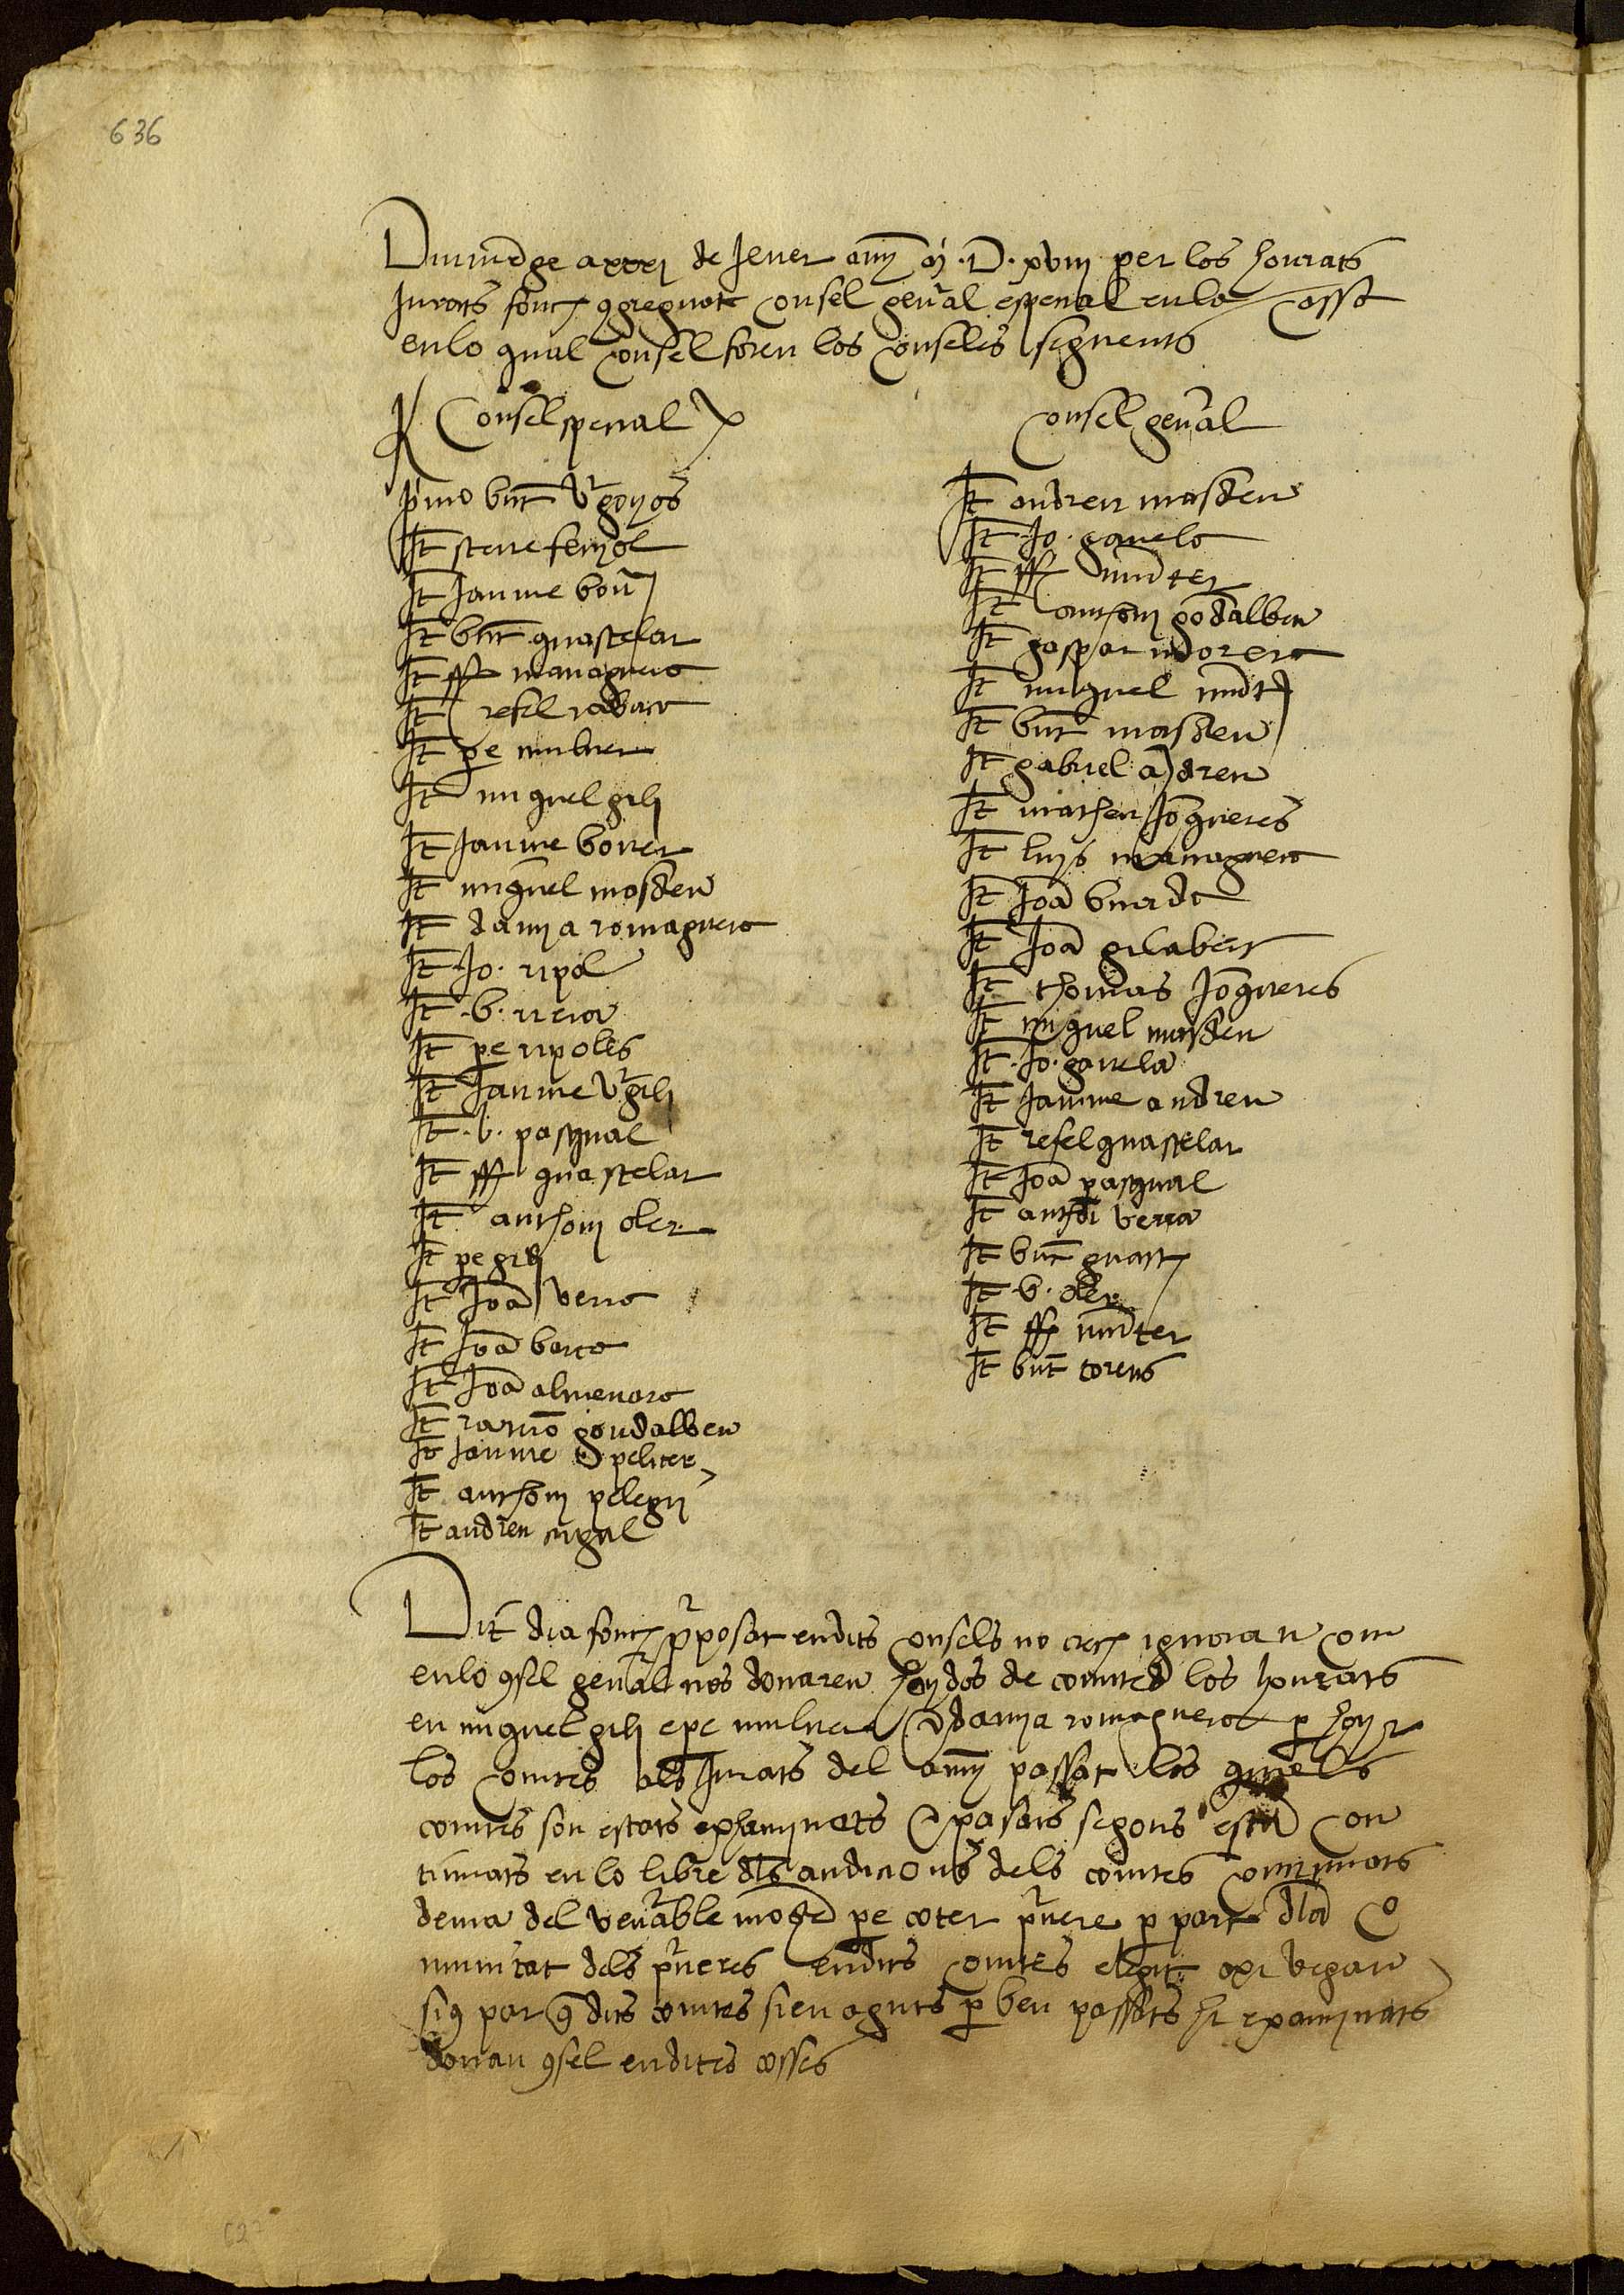 636
Diumēge a xxxj de Jener any M.D.xviij per los honrats
Jurats fonch 9greguat consel gen̄al e special en la cassa
en lo qual consel foren los consellés seguents
Consel special
p̄imo bn̄t v̄gonyos
It steve fenyol
It Jaume bon̄
It bn̄t guastelar
It ff managuera
It refel
It pe muluer
It miquel gili
It Jaume bover
It miquel mascleu
It damia romaguera
It Jo. ripol
It .b. riera
It pe ripolés
It Jaume v̄gili
It .b. pasqual
It ff guastelar
It anthoni oler
It pe gili
It Joā verra
It Joā barca
It Joā almenara
It ramō gondalbeu
It Jaume speliter
It anthoni pelegri
It andreu
Consel gen̄al
It andreu mascleu
It Jo. gavela
It ff mūter
It anthoni gōdalbeu
It gaspar morera
It miquel mūt
It bn̄t mascleu
It gabriel ādreu
It matheu Jōqueres
It luys managuera
It Joā buada
It Joā gilabert
It thomas Jōqueres
It miquel mascleu
It .Jo. gavela
It Jaume andreu
It refel guastelar
It Joā pasqual
It anthoi verra
It bn̄t guast
It .b. oler
It ff mūter
It bn̄t torens
Dit dia fonch p̄posat en dits consels no crech ignoran com
en lo 9sel gen̄al nos donaren hoydos de comtes los honrats
en miquel gili e pe muluer e damia romaguera p̄ hoyr
los comtes als Jurats del any passat los quels
comtes son estats exhaminats e pasats segons esta con
tinuats en lo libre dls audicions dels comtes continuats
de ma del ven̄able moss pe coter p̄vere p part dla co
munitat dels p̄veres en dits comtes elegit axi vegan
si9 par q̄ dits comtes sien aguts p̄ ben passats hi examjnats
donau 9sel en dites cosses